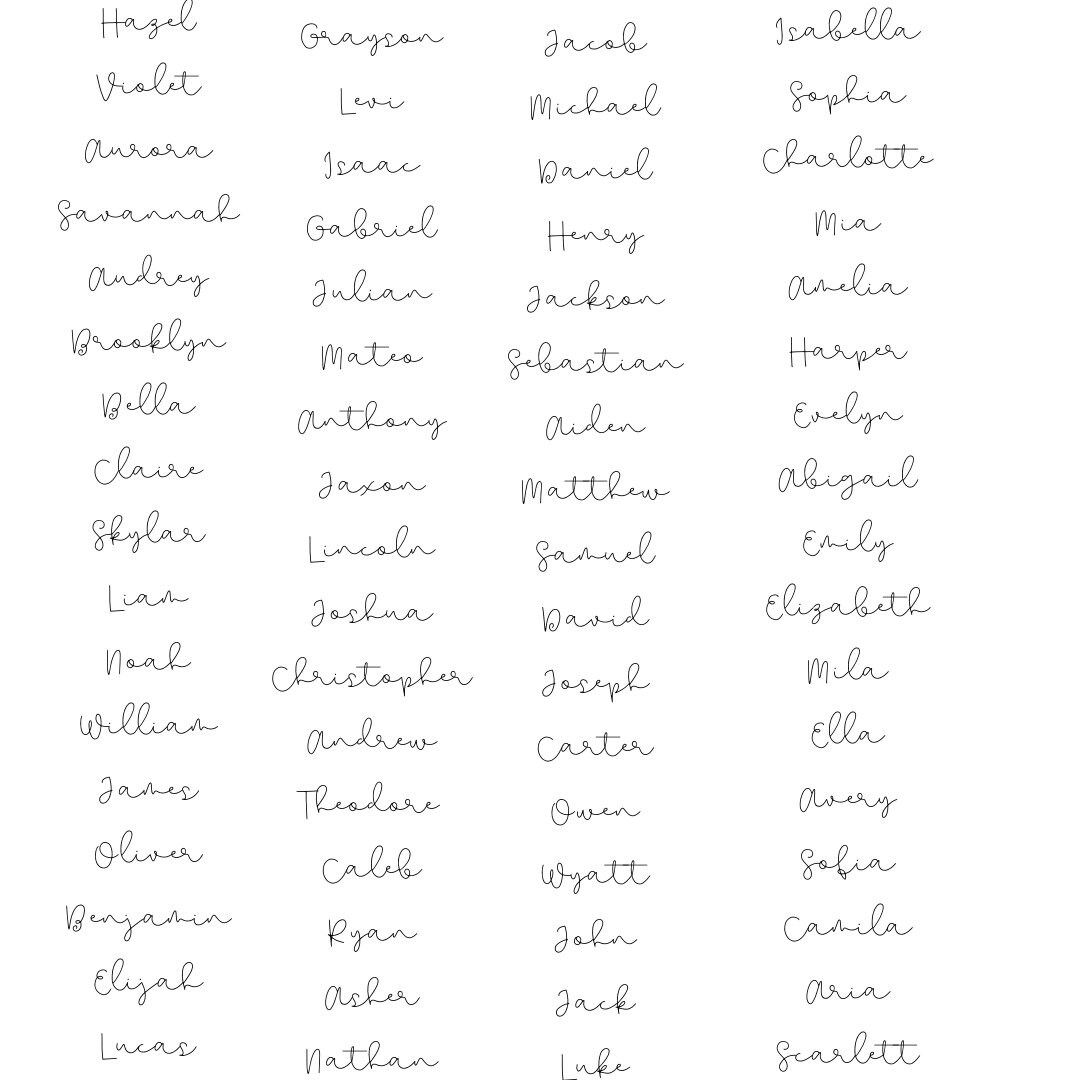 Hazel
Violet
Aurora
Savannah
Audrey
Brooklyn
Bella
Claire
Skylar
Liam
Noah
William
James
Oliver
Benjamin
Elijah
Lucas
Grayson
Levi
Isaac
Gabriel
Julian
Mateo
Anthony
Jaxon
Lincoln
Joshua
Christopher
Andrew
Theodore
Caleb
Ryan
Asher
Nathan
Jacob
Michael
Daniel
Henry
Jackson
Sebastian
Aiden
Matthew
Samuel
David
Joseph
Carter
Owen
Wyatt
John
Jack
Luke
Isabella
Sophia
Charlotte
Mia
Amelia
Harper
Evelyn
Abigail
Emily
Elizabeth
Mila
Ella
Avery
Sofia
Camila
Aria
Scarlett